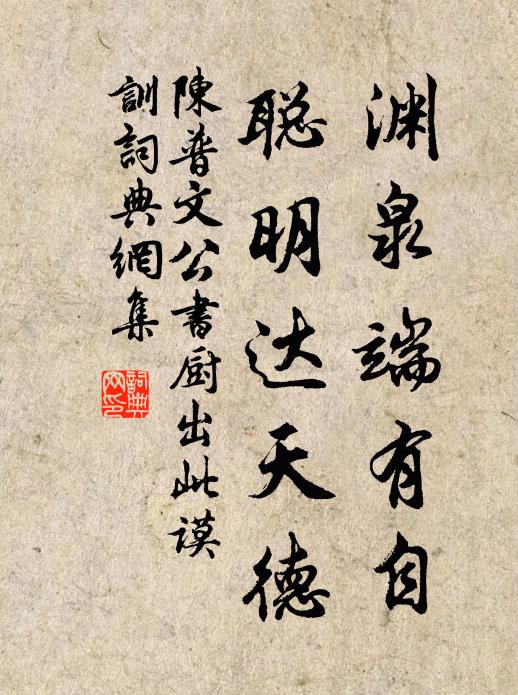 渊泉端有自
聪明达天德
陳普文公書厨出此謨
訓詞典網集
詞典网印